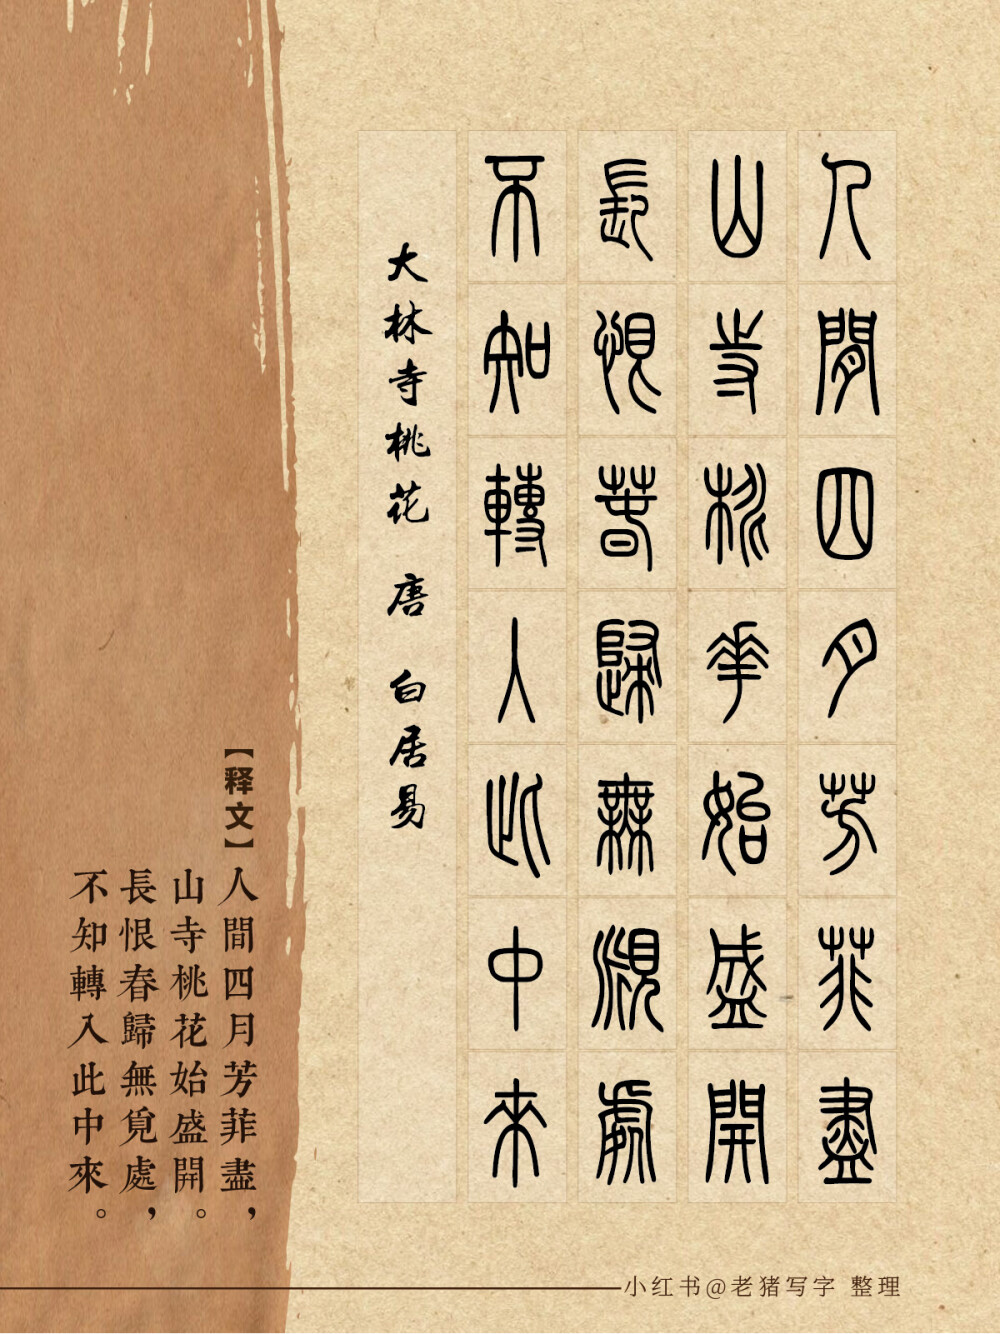 人閒四月芳菲盡
山寺桃華始盛開
長恨萅歸無覛處
不知轉入此中來
大林寺桃花 唐 白居易
【释文】人間四月芳菲盡，
山寺桃花始盛開。
長恨春歸無覓處，
不知轉入此中來。
小红书@老猪写字 整理